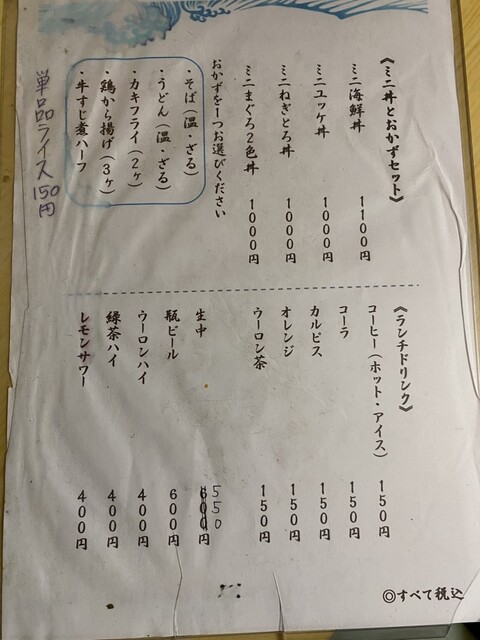 《ミニ丼とおかずセット》
ミニ海鮮丼 1100円
ミニユッケ丼 1000円
ミニねぎとろ丼 1000円
ミニまぐろ2色丼 1000円
おかずを1つお選びください
・そば(温・ざる)
・うどん(温・ざる)
・カキフライ(2ヶ)
・鶏から揚げ(3ヶ)
・牛すじ煮ハーフ
単品ライス 150円
《ランチドリンク》
コーヒー(ホット・アイス) 150円
コーラ 150円
カルピス 150円
オレンジ 150円
ウーロン茶 150円
生中 600円 550
瓶ビール 600円
ウーロンハイ 400円
緑茶ハイ 400円
レモンサワー 400円
◎すべて税込